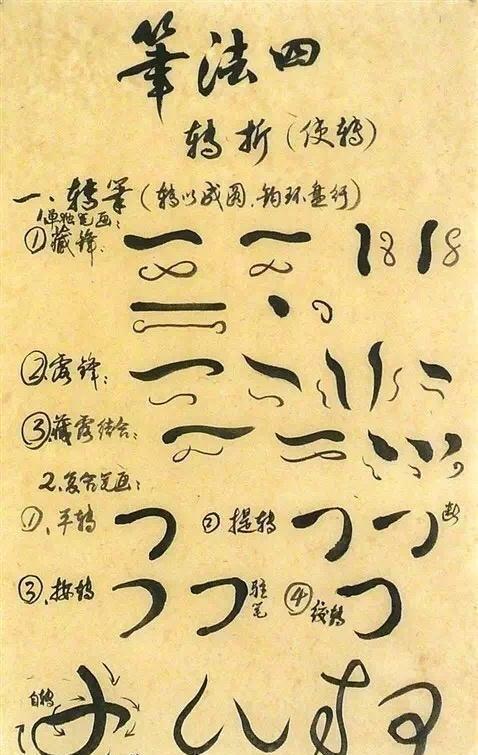 筆法四
转折(使转)
一、转筆(转以成圆,钩环盘行)
1.单独笔画:
①藏锋:
②露锋:
③藏露结合:
2.复合笔画:
①、平转 ②提转 断
③、按转 驻笔 ④绞转
自转